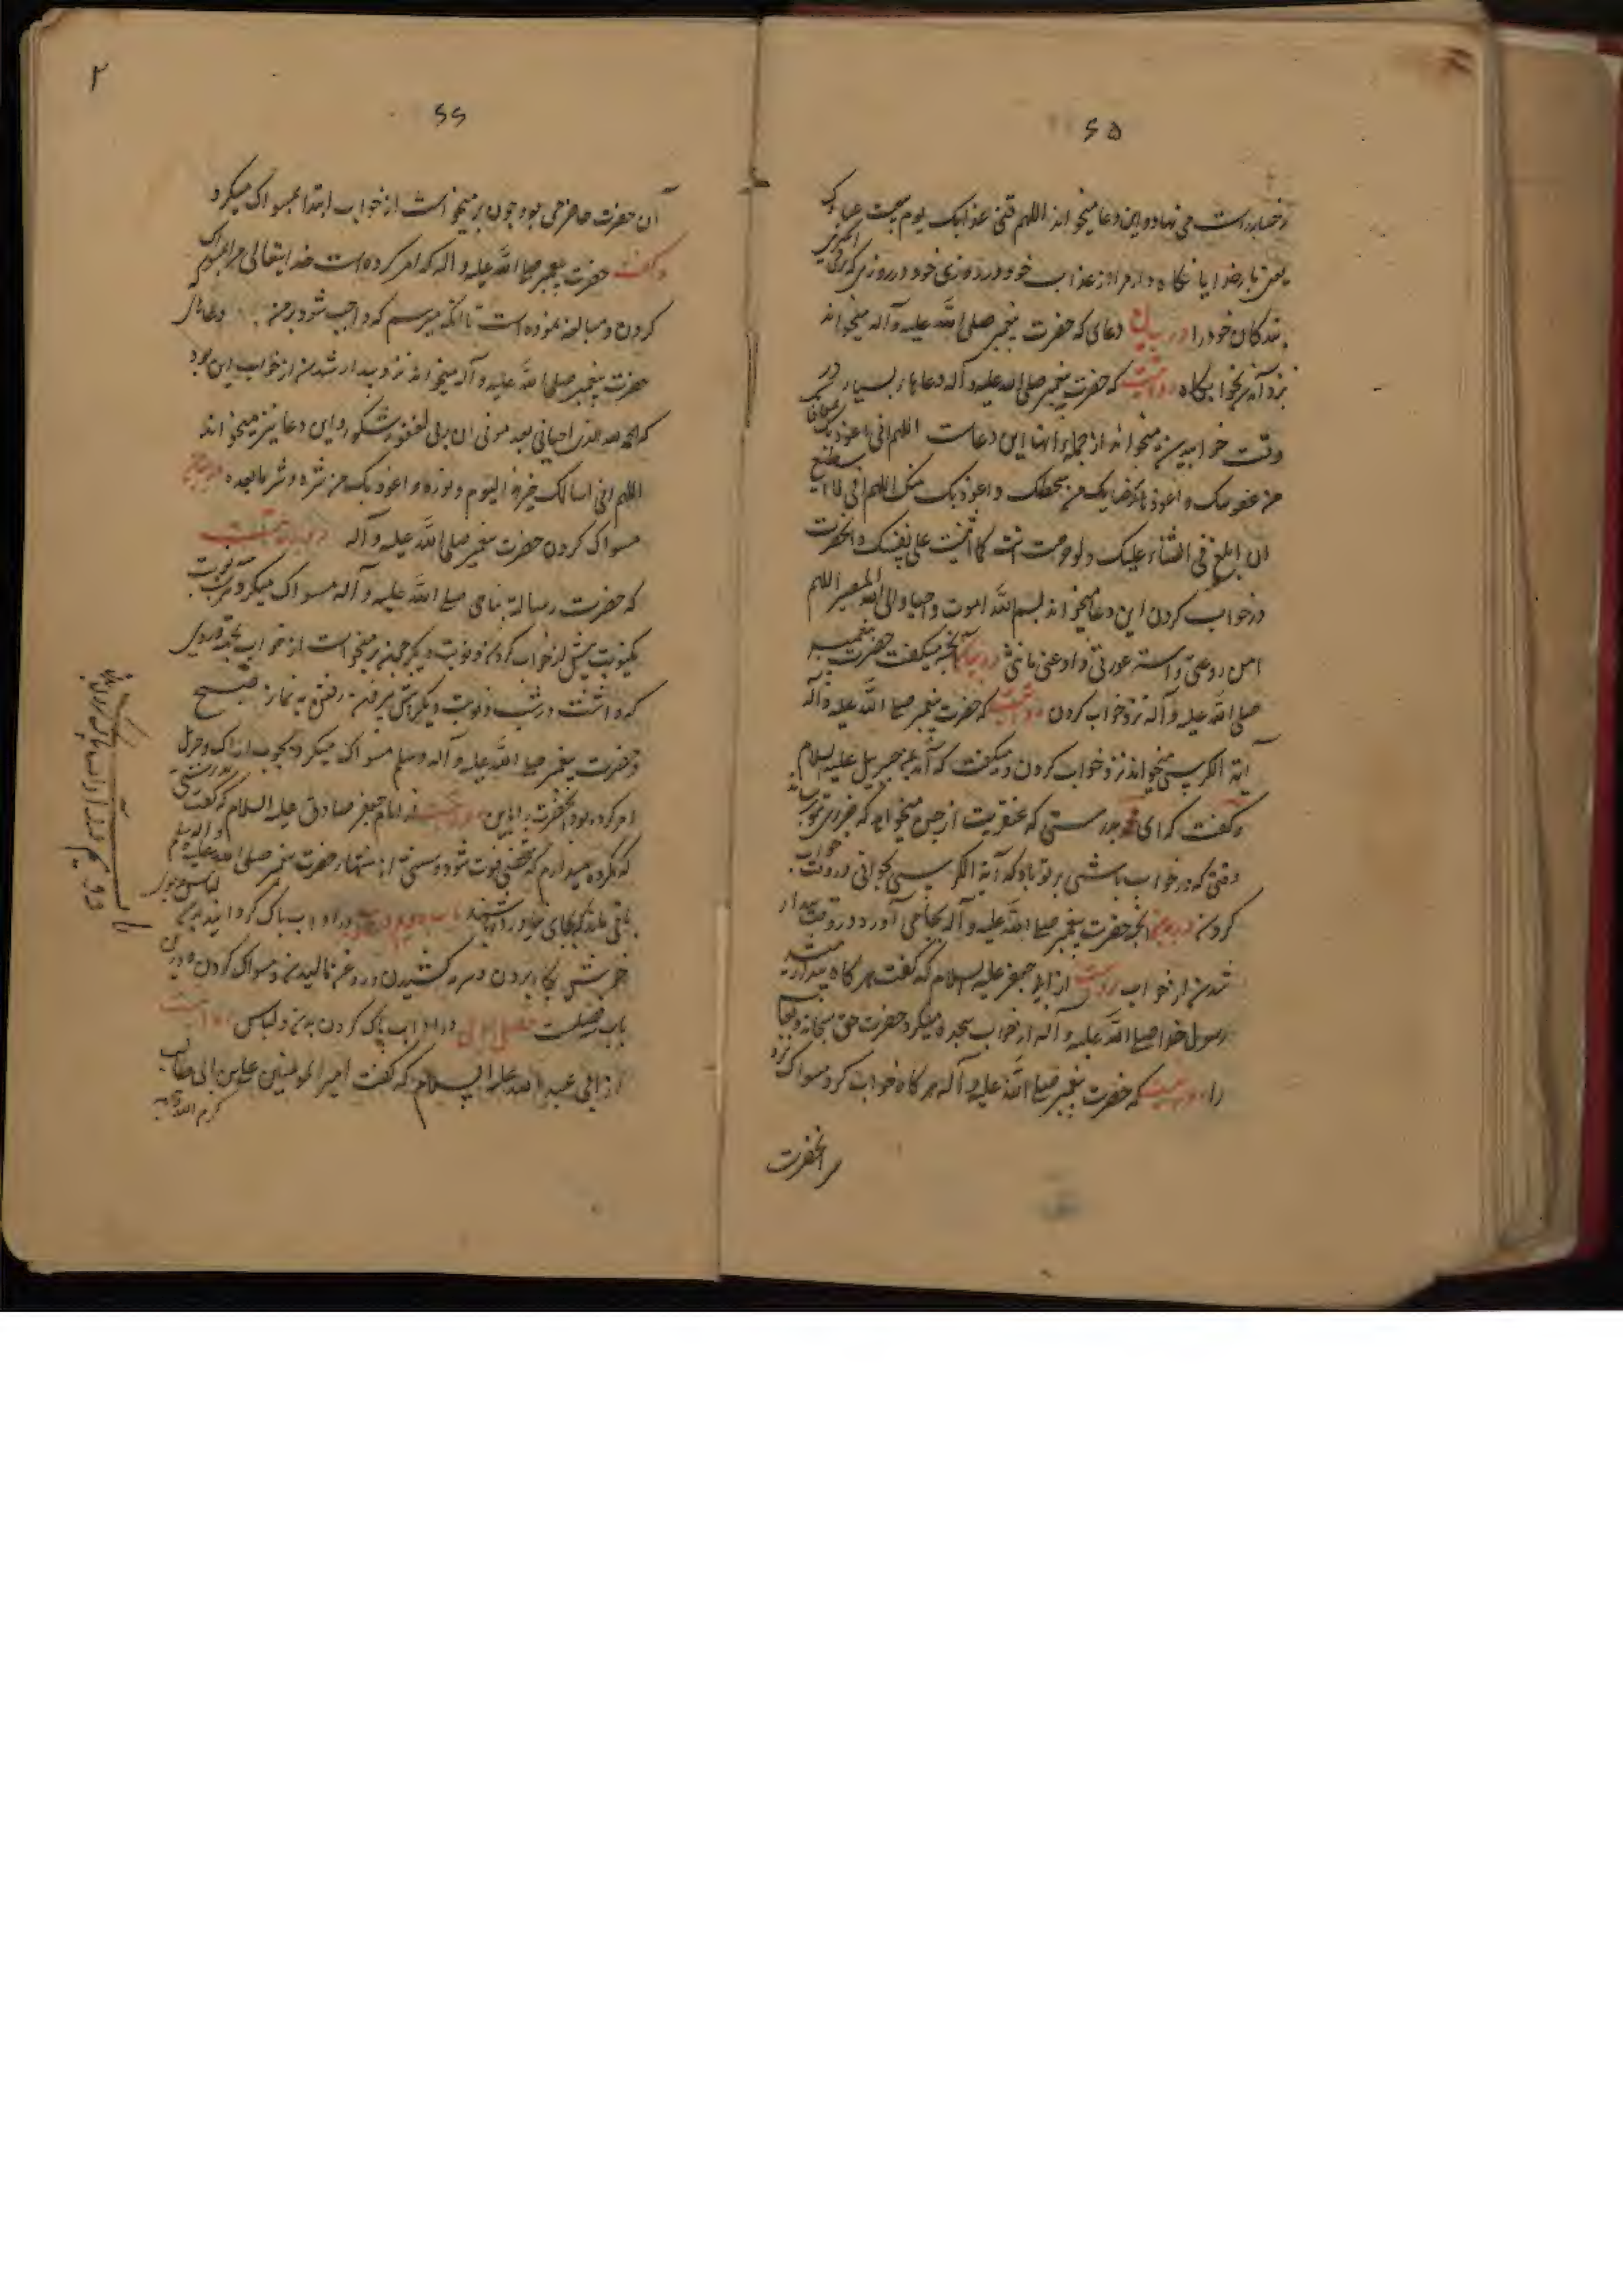 ۶۵
رخساره راست می نهاد و این دعا میخواند اللهم قنی عذابک یوم تبعث عبادک
یعنی بار خدایا نگاه دار مرا از عذاب خود در روزی که برانگیزی
بندگان خود را در بیان دعای که حضرت پیغمبر صلی الله علیه و آله میخواند
نزد آمدن بخوابگاه روایتست که حضرت پیغمبر صلی الله علیه و آله دعاها بسیار در
وقت خوابیدن میخواند از جمله آنها این دعاست اللهم انی اعوذ بک بمعافاتک
من عقوبتک و اعوذ برضایک من سخطک و اعوذ بک منک اللهم انی لا استطیع
ان ابلغ فی الثناء علیک ولو حرصت انت کما اثنیت علی نفسک و آنحضرت
در خواب کردن این دعا میخواند بسم الله اموت و احیا و الی الله المصیر اللهم
امن روعتی و استر عورتی و اد عنی امانتی در بیان آنچه میگفت حضرت پیغمبر
صلی الله علیه و آله نزد خواب کردن روایتست که حضرت پیغمبر صلی الله علیه و آله
آیة الکرسی میخواند نزد خواب کردن و میگفت که آمد بمن جبریل علیه السلام
و گفت که ای محمد بدرستی که عفریت از جن میخواهد که ضرری بتو برساند
وقتی که در خواب باشی بر تو باد که آیة الکرسی بخوانی در وقت خواب
کردن در بیان آنچه حضرت پیغمبر صلی الله علیه و آله بجا می آورد در وقت بیدار
شدن از خواب روایتست از ابو جعفر علیه السلام که گفت هرگاه بیدار میشد
رسول خدا صلی الله علیه و آله از خواب سجده میکرد حضرت حق سبحانه و تعالی
را روایتست که حضرت پیغمبر صلی الله علیه و آله هرگاه خواب کرد مسواک نزد
سر آنحضرت
۲
۶۶
آن حضرت حاضر می بود و چون بر میخواست از خواب ابتدا بمسواک میکرد
و گفت حضرت پیغمبر صلی الله علیه و اله که امر کرده است خدایتعالی مرا بمسواک
کردن و مبالغه نموده است تا آنکه میترسم که واجب شود بر من و دعائی که
حضرت پیغمبر صلی الله علیه و آله میخواند نزد بیدار شدن از خواب این بود
که الحمد لله الذی احیانی بعد موتی ان ربی لغفور شکور و این دعا نیز میخواند
اللهم انی اسالک خیر هذا الیوم و نوره و اعوذ بک من شره و شر ما بعده در بیان
مسواک کردن حضرت پیغمبر صلی الله علیه و آله روایتست
که حضرت رسالة پناهی صلی الله علیه و آله مسواک میکرد سه نوبت
یکنوبت پیش از خواب کردن و نوبت دیگر چون بر میخواست از خواب بجهة وردی
که داشت در شب و نوبت دیگر پیش از رفتن به نماز صبح
و حضرت پیغمبر صلی الله علیه و آله و سلم مسواک میکرد بچوب اراک و جبرئیل
امر کرده بود آنحضرت را باین روایتست از امام جعفر صادق علیه السلام که گفت بدرستی
که مکروه میدارم که شخصی فوت شود و سنتی از سنتهاء حضرت پیغمبر صلی الله علیه و آله و سلم
باقی ماند که بجای نیاورده باشد باب دویم در آداب پاک گردانیدن لباس و بدن
خوشبوی بکار بردن و سرمه کشیدن و روغن مالیدن و مسواک کردن و در این
باب فصلست فصل اول در آداب پاک کردن بدن و لباس روایتست
از ابی عبد الله علیه السلام که گفت امیر المومنین علی بن ابی طالب
کرم الله وجهه
باب
دویم